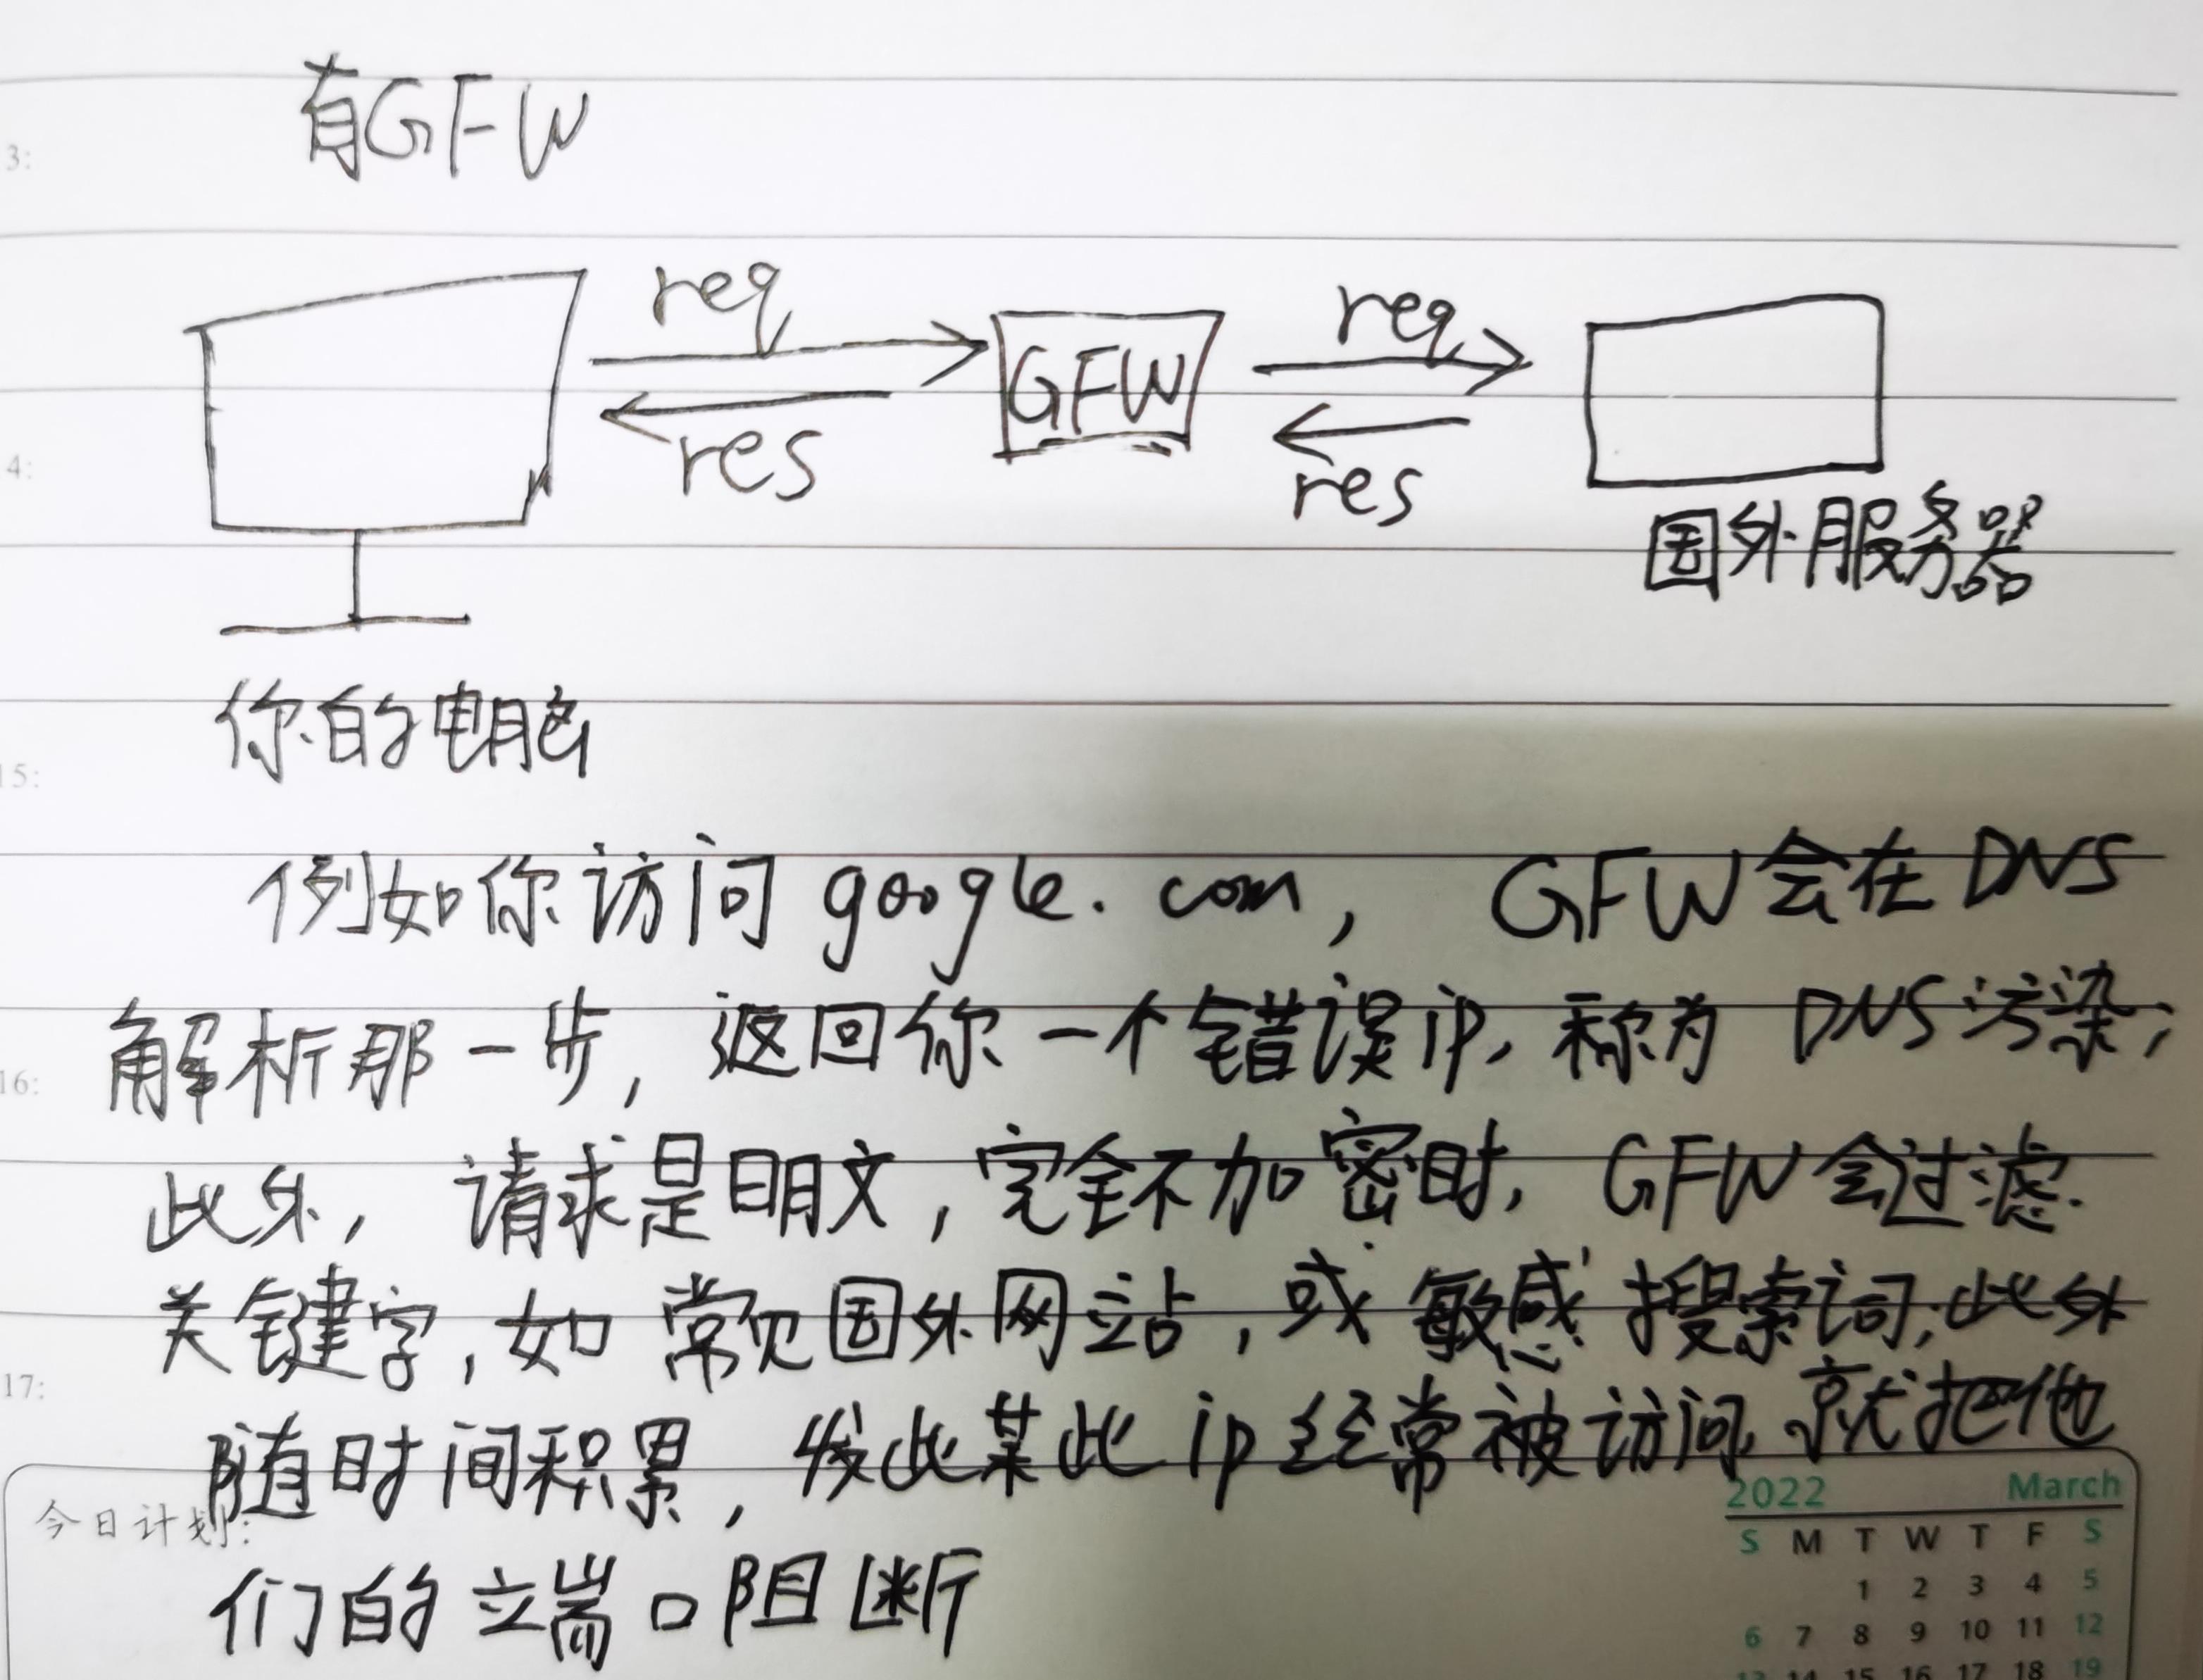 3:
有GFW
req
req
GFW
4:
res
res
国外服务器
你的电脑
15:
例如你访问 google.com, GFW会在DNS
解析那一步, 返回你一个错误ip, 称为 DNS污染;
16:
此外, 请求是明文, 完全不加密时, GFW会过滤
关键字, 如常见国外网站, 或敏感搜索词; 此外
17:
随时间积累, 发此某此ip经常被访问, 就把他
今日计划:
们的端口阻断
2022 March
S M T W T F S
1 2 3 4 5
6 7 8 9 10 11 12
13 14 15 16 17 18 19